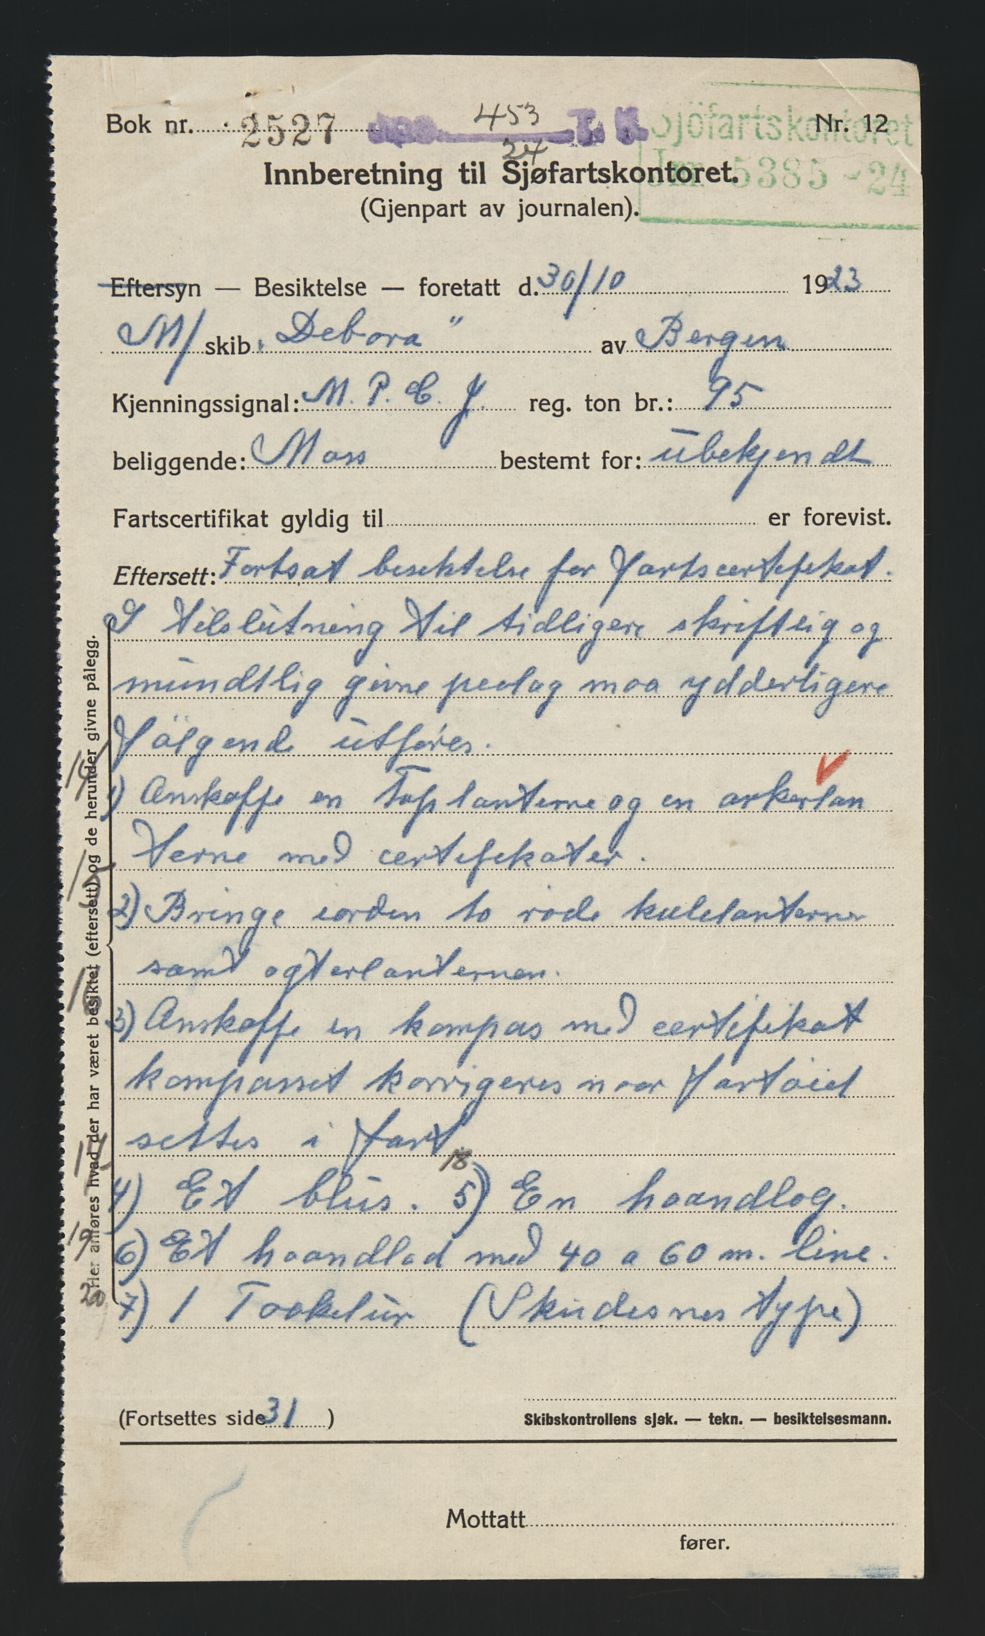 Bok nr. 2527
453
24
T. K.
Nr. 12
Sjöfartskontoret
Jnr 5385 - 24
Innberetning til Sjøfartskontoret.
(Gjenpart av journalen).
Eftersyn — Besiktelse — foretatt d. 30/10 1923
M/ skib „Debora" av Bergen
Kjenningssignal: M. P. C. J. reg. ton br.: 95
beliggende: Moss bestemt for: ubekjendt
Fartscertifikat gyldig til er forevist.
Eftersett: Fortsat besiktelse for fartscertifikat.
I tilslutning til tidligere skriftlig og
mundtlig givne paalag maa ydderligere
følgende utføres.
14 1) Anskaffe en Toplanterne og en ankerlan
terne med certifikater.
15 2) Bringe iorden to røde kulelanterner
samt agterlanternen.
16 3) Anskaffe en kompas med certifikat
kompasset korrigeres naar fartøiet
settes i fart
17 4) Et blus. 18 5) En haandlog.
19 6) Et haandlod med 40 a 60 m. line.
20 7) 1 Taakelur (Skudesnes type)
Her anføres hvad der har været besiktet (eftersett) og de herunder givne pålegg.
(Fortsettes side 31 )
Skibskontrollens sjøk. — tekn. — besiktelsesmann.
Mottatt
fører.